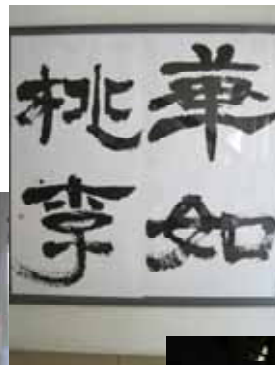 華如
桃李